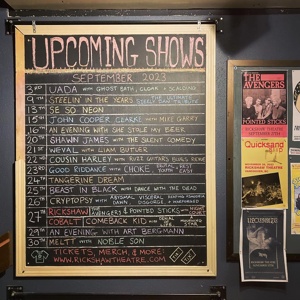 UPCOMING SHOWS
SEPTEMBER 2023
3RD UADA WITH GHOST BATH, CLOAK +
9TH STEELIN' IN THE YEARS
13TH SE SO NEON
15TH JOHN COOPER CLARKE WITH MIKE GARRY
16TH AN EVENING WITH SHE STOLE MY BEER
20TH SHAWN JAMES WITH THE SILENT COMEDY
21ST WEVAL WITH LIAM BUTLER
22ND COUSIN HARLEY WITH RUZZ GUITAR'S BLUES REVUE
23RD GOOD RIDDANCE WITH CHOKE,
24TH TANGERINE DREAM
25TH BEAST IN BLACK WITH DANCE WITH THE DEAD
26TH CRYPTOPSY WITH ABYSMAL
27TH RICKSHAW AVENGERS & POINTED STICKS
COBALT COMEBACK KID
29TH AN EVENING WITH ART BERGMANN
30TH MELTT WITH NOBLE SON
TICKETS, MERCH, & MORE!
WWW.RICKSHAWTHEATRE.COM
THE
AVENGERS
POINTED STICKS
RICKSHAW THEATRE
Quicksand